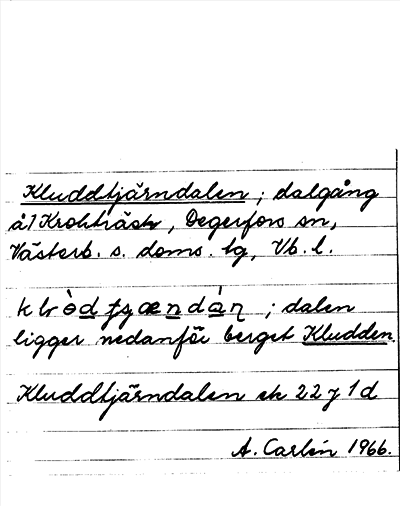 Kluddtjärndalen ; dalgång
å1 Krokträsk, Degerfors sn,
Västerb. s. doms. lg, Vb. l.
ligger nedanför berget Kludden.
Kluddtjärndalen ek 22 J 1 d
A. Carlén 1966.